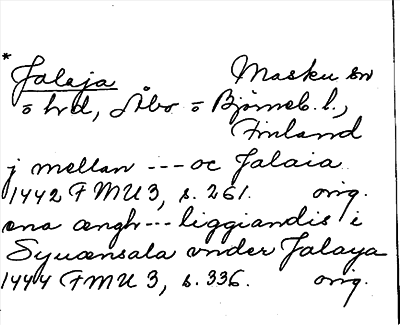 * Jalaja Masku sn
ö hrd, Åbo ö Bjōrneb. l.,
Finland
j mellan --- oc Jalaia
1442 FMU 3, s. 261. orig.
æna ængh --- liggiandis i
Syuænsala vnder Jalaya
1444 FMU 3, s. 336. orig.